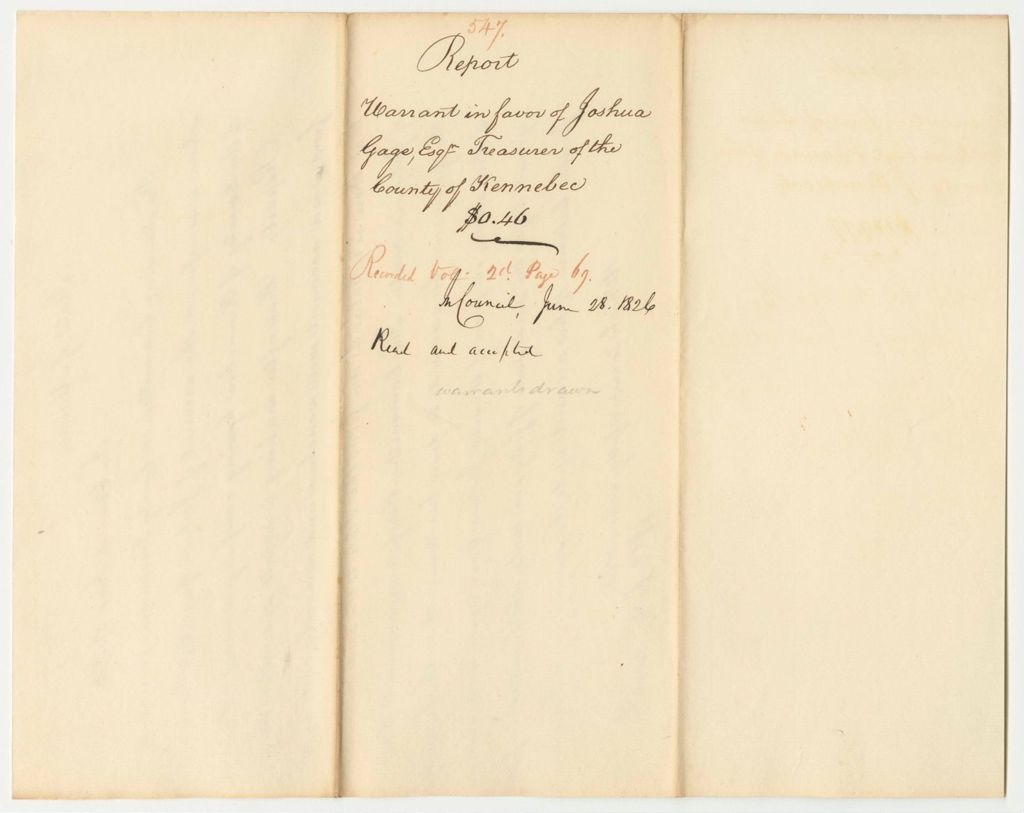 547.
Report
Warrant in favor of Joshua
Gage, Esqr Treasurer of the
County of Kennebec
$0.46
Recorded Vol. 2d. Page 69.
In Council, June 28. 1826
Read and accepted
warrants drawn